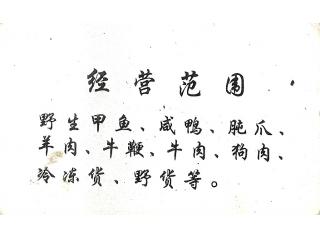 经营范围
野生甲鱼、咸鸭、肫爪、
羊肉、牛鞭、牛肉、狗肉、
冷冻货、野货等。